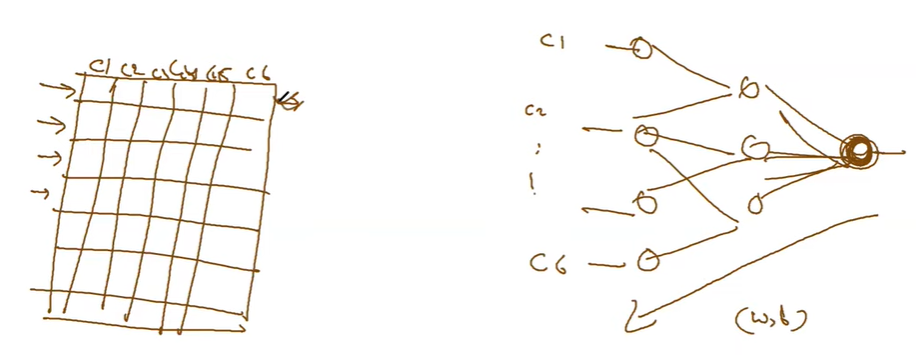 C1 C2 C3 C4 C5 C6
C1
C2
:
!
C6
(w,b)